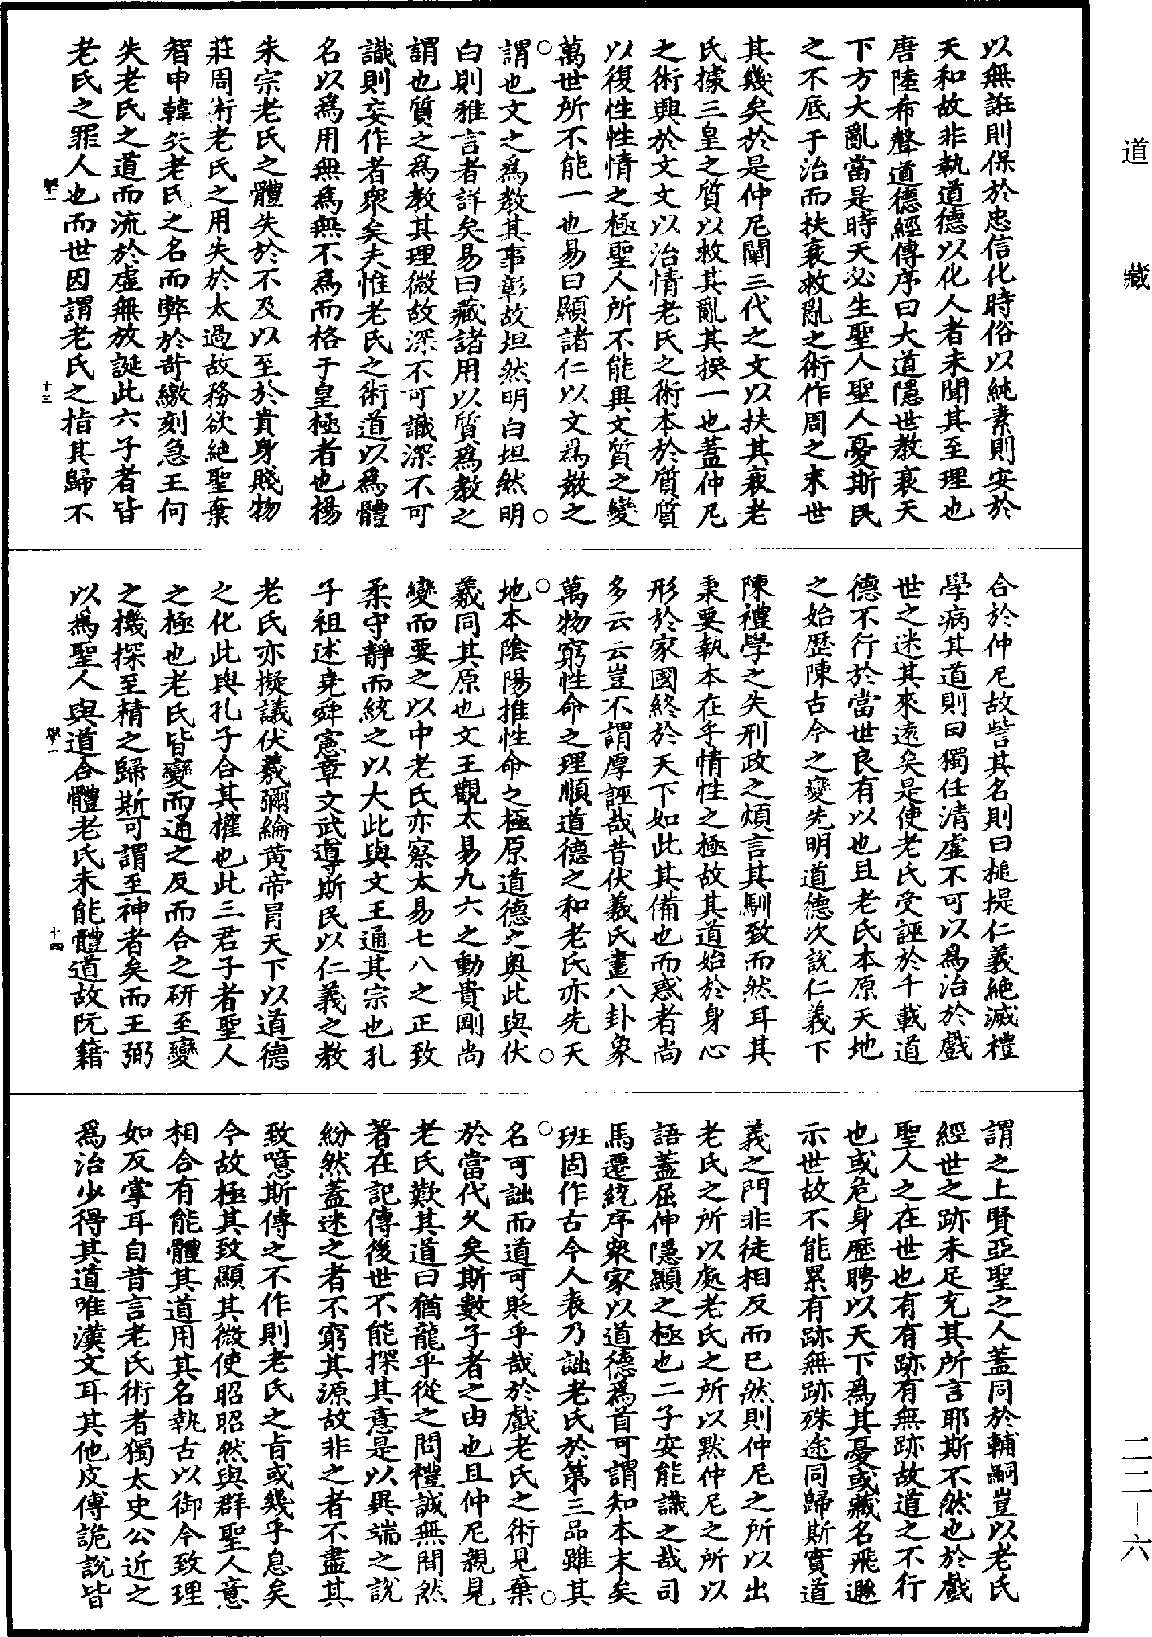 道藏
二二—六
以無誑則保於忠信化時俗以純素則安於
天和故非執道德以化人者未聞其至理也
唐陸希聲道德經傳序曰大道隱世教衰天
下方大亂當是時天必生聖人聖人憂斯民
之不底于治而扶衰救亂之術作周之末世
其幾矣於是仲尼闡三代之文以扶其衰老
氏據三皇之質以救其亂其揆一也蓋仲尼
之術興於文文以治情老氏之術本於質質
以復性性情之極聖人所不能異文質之變
萬世所不能一也易曰顯諸仁以文為教之
謂也文之為教其事彰故坦然明白坦然明
白則雅言者詳矣易曰藏諸用以質為教之
謂也質之為教其理微故深不可識深不可
識則妄作者衆矣夫惟老氏之術道以為體
名以為用無為無不為而格于皇極者也楊
朱宗老氏之體失於不及以至於貴身賤物
莊周術老氏之用失於太過故務欲絶聖棄
智申韓失老氏之名而弊於苛繳刻急王何
失老氏之道而流於虛無放誕此六子者皆
老氏之罪人也而世因謂老氏之指其歸不
學一
十三
合於仲尼故訾其名則曰搥提仁義絶滅禮
學病其道則曰獨任清虛不可以為治於戲
世之迷其來遠矣是使老氏受誣於千載道
德不行於當世良有以也且老氏本原天地
之始歷陳古今之變先明道德次說仁義下
陳禮學之失刑政之煩言其馴致而然耳其
秉要執本在乎情性之極故其道始於身心
形於家國終於天下如此其備也而惑者尚
多云云豈不謂厚誣哉昔伏羲氏畫八卦象
萬物窮性命之理順道德之和老氏亦先天
地本陰陽推性命之極原道德之奥此與伏
羲同其原也文王觀太易九六之動貴剛尚
變而要之以中老氏亦察太易七八之正致
柔守靜而統之以大此與文王通其宗也孔
子祖述堯舜憲章文武導斯民以仁義之教
老氏亦擬議伏羲彌綸黄帝冐天下以道德
之化此與孔子合其權也此三君子者聖人
之極也老氏皆變而通之反而合之研至變
之機探至精之歸斯可謂至神者矣而王弼
以為聖人與道合體老氏未能體道故阮籍
學一
十四
謂之上賢亞聖之人蓋同於輔嗣豈以老氏
經世之跡未足充其所言耶斯不然也於戲
聖人之在世也有有跡有無跡故道之不行
也或危身歷聘以天下為其憂或藏名飛遯
示世故不能累有跡無跡殊途同歸斯實道
義之門非徒相反而已然則仲尼之所以出
老氏之所以處老氏之所以默仲尼之所以
語蓋屈伸隱顯之極也二子安能識之哉司
馬遷統序衆家以道德為首可謂知本末矣
班固作古今人表乃詘老氏於第三品雖其
名可詘而道可貶乎哉於戲老氏之術見棄
於當代久矣斯數子者之由也且仲尼親見
老氏歎其道曰猶龍乎從之問禮誠無間然
著在記傳後世不能探其意是以異端之說
紛然蓋迷之者不窮其源故非之者不盡其
致噫斯傳之不作則老氏之旨或幾乎息矣
今故極其致顯其微使昭昭然與群聖人意
相合有能體其道用其名執古以御今致理
如反掌耳自昔言老氏術者獨太史公近之
為治少得其道唯漢文耳其他皮傳詭說皆